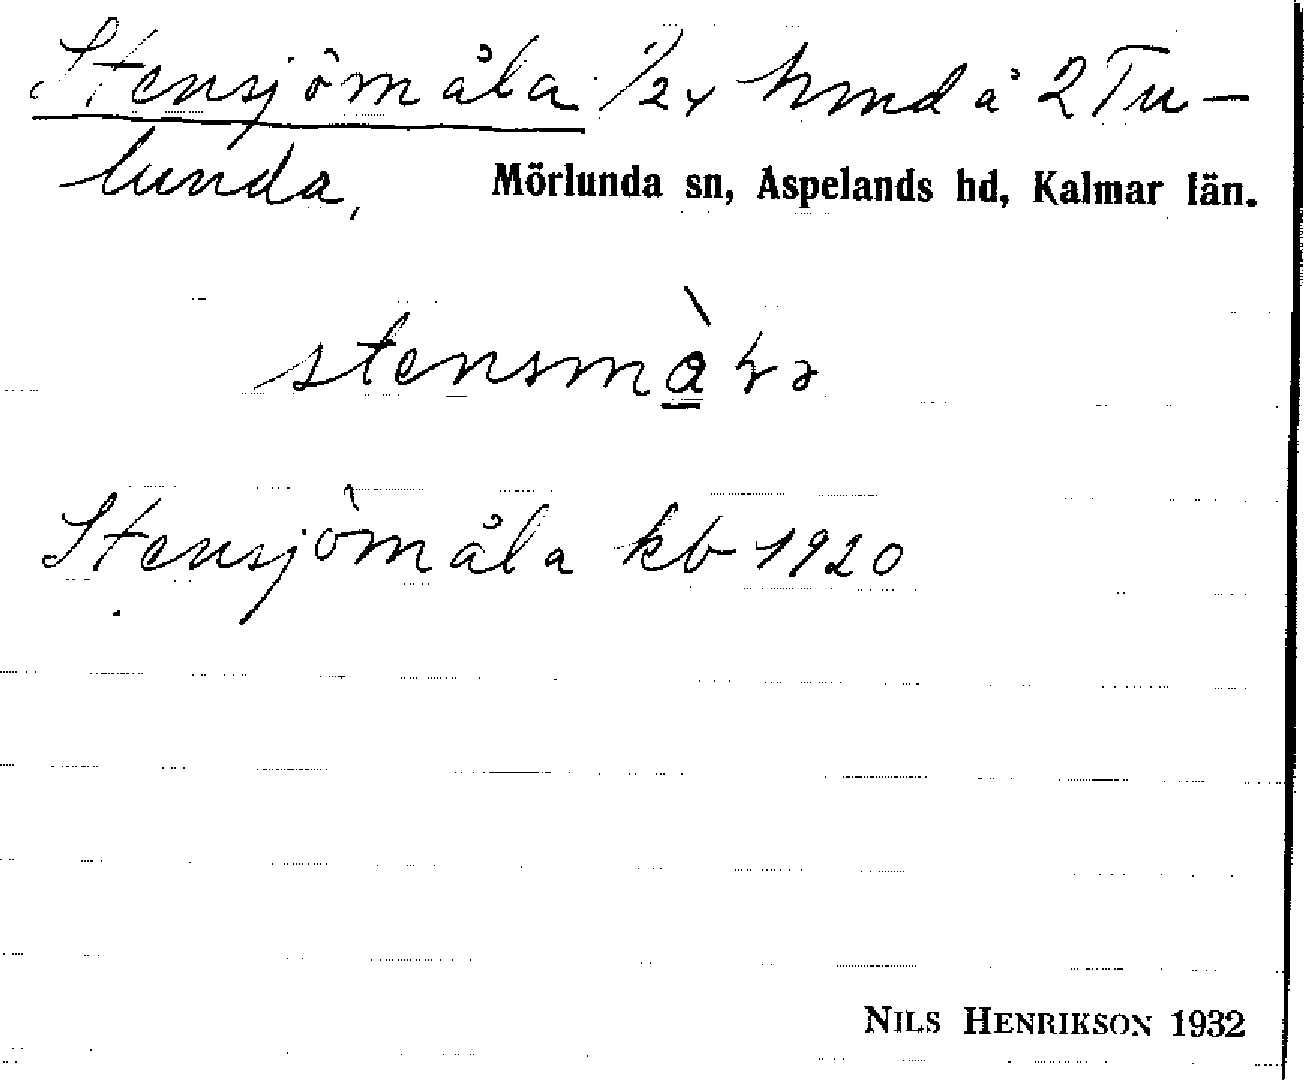 Stensjömåla 1/24 hmd å 2 Tu-
lunda, Mörlunda sn, Aspelands hd, Kalmar län.
Stensjömåla kb 1920
NILS HENRIKSON 1932